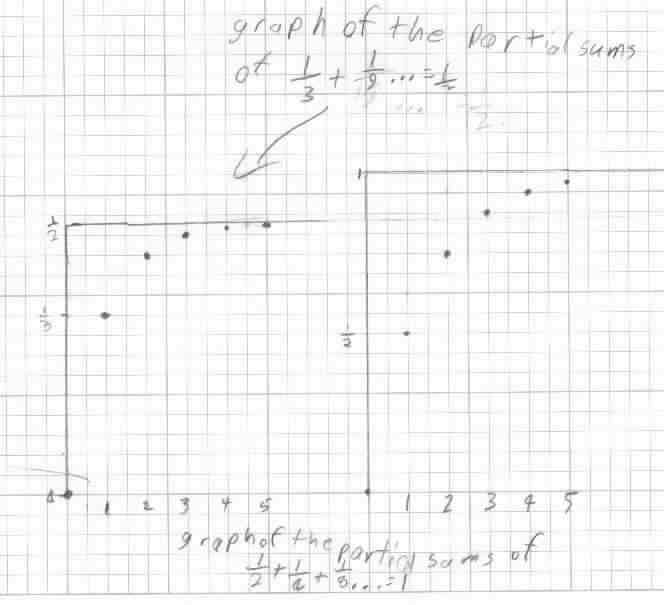 graph of the partial sums
of 1/3 + 1/9 ... = 1/2
1/2
1/3
1 2 3 4 5
1
1/2
1 2 3 4 5
graph of the partial sums of
1/2 + 1/4 + 1/8 ... = 1